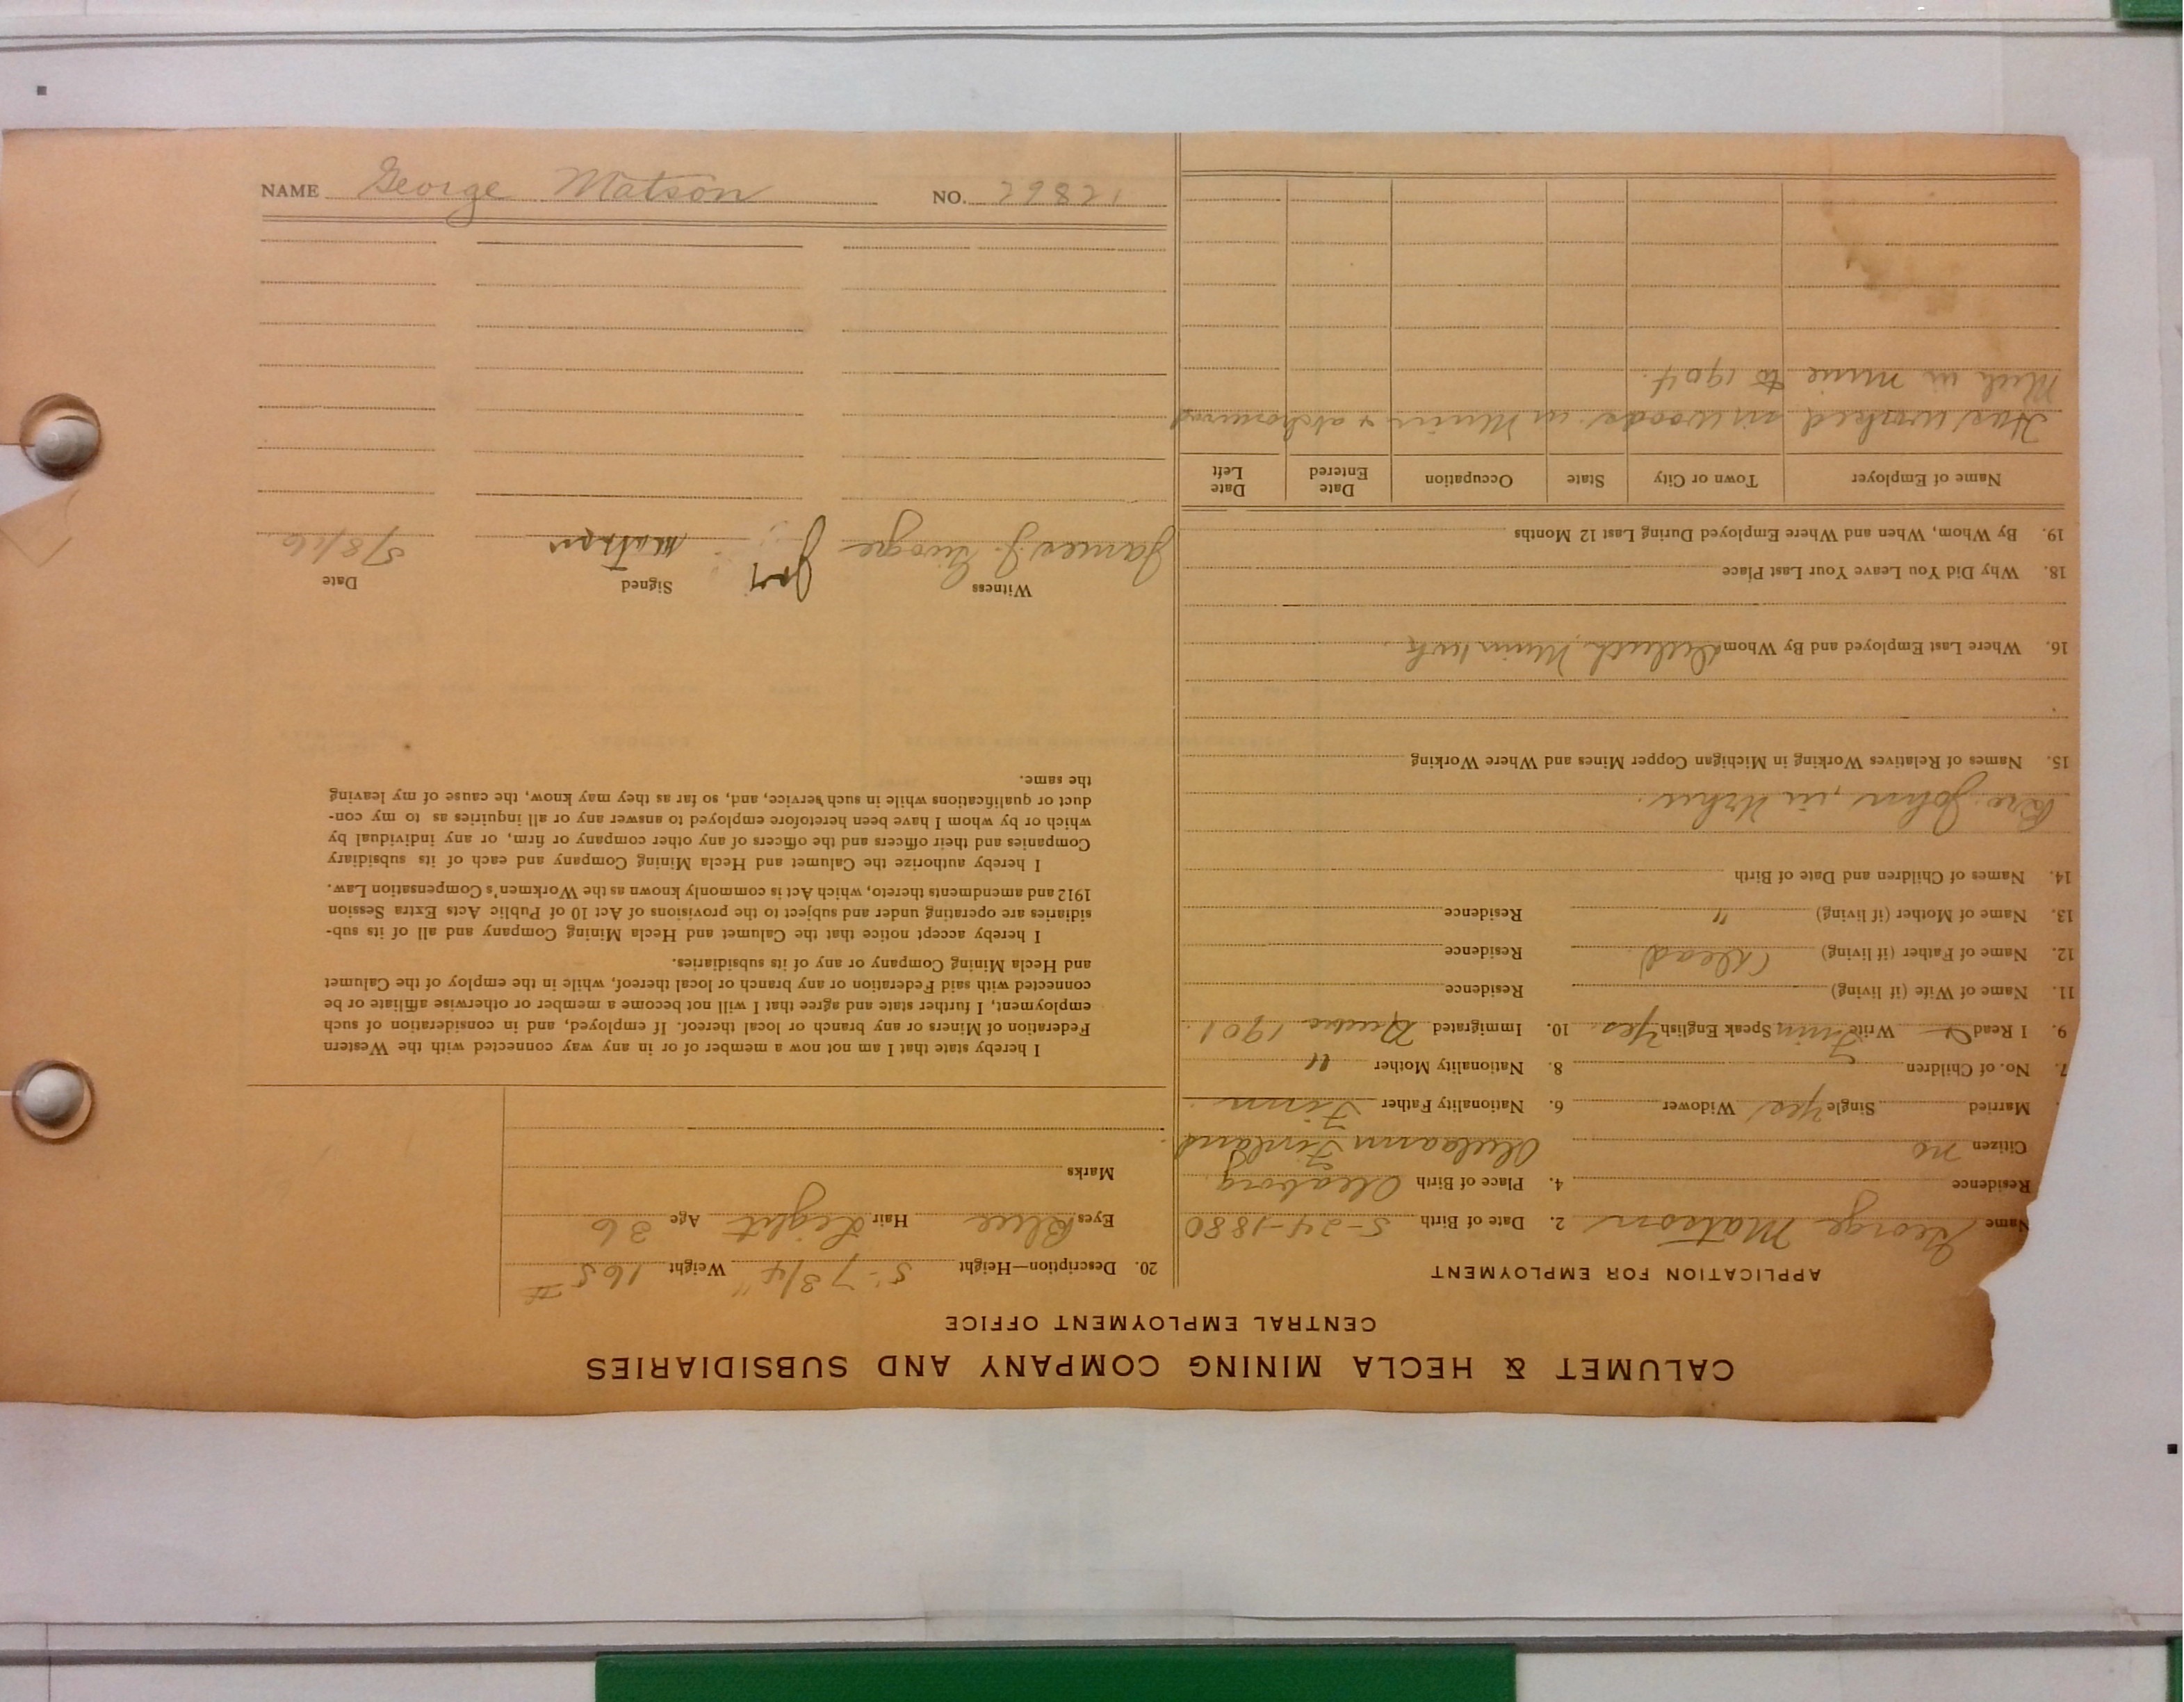 CALUMET & HECLA MINING COMPANY AND SUBSIDIARIES
CENTRAL EMPLOYMENT OFFICE
APPLICATION FOR EMPLOYMENT
Name George Matson 2. Date of Birth 5-24-1880
Residence 4. Place of Birth Uleaborg
Citizen no Finland
Married Single Yes Widower 6. Nationality Father Finn
7. No. of Children 8. Nationality Mother "
9. I Read Write Finn Speak English Yes. 10. Immigrated 1901.
11. Name of Wife (if living) Residence
12. Name of Father (if living) (Dead) Residence
13. Name of Mother (if living) " Residence
14. Names of Children and Date of Birth
Bro. John, in
15. Names of Relatives Working in Michigan Copper Mines and Where Working
16. Where Last Employed and By Whom Duluth, Minn
18. Why Did You Leave Your Last Place
19. By Whom, When and Where Employed During Last 12 Months
Name of Employer Town or City State Occupation Date Entered Date Left
Has worked in woods in Minn &
Mich in mine to 1904.
20. Description—Height 5'-7 3/4" Weight 165 #
Eyes Blue Hair Light Age 36
Marks
I hereby state that I am not now a member of or in any way connected with the Western
Federation of Miners or any branch or local thereof. If employed, and in consideration of such
employment, I further state and agree that I will not become a member or otherwise affiliate or be
connected with said Federation or any branch or local thereof, while in the employ of the Calumet
and Hecla Mining Company or any of its subsidiaries.
I hereby accept notice that the Calumet and Hecla Mining Company and all of its sub-
sidiaries are operating under and subject to the provisions of Act 10 of Public Acts Extra Session
1912 and amendments thereto, which Act is commonly known as the Workmen's Compensation Law.
I hereby authorize the Calumet and Hecla Mining Company and each of its subsidiary
Companies and their officers and the officers of any other company or firm, or any individual by
which or by whom I have been heretofore employed to answer any or all inquiries as to my con-
duct or qualifications while in such service, and, so far as they may know, the cause of my leaving
the same.
Witness Signed Date
James J. Matson 5/8/16
NAME George Matson NO. 29821